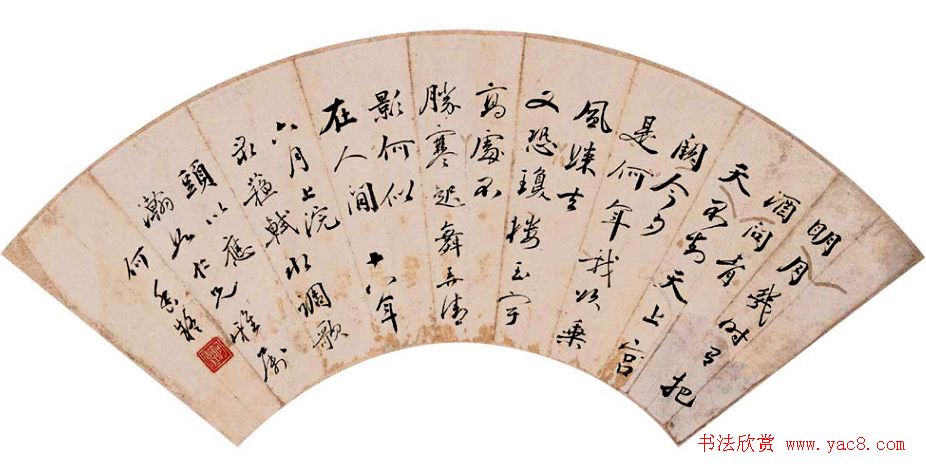 明月幾时有把
酒問青
天不知天上宮
闕今夕
是何年我欲乘
風歸去
又恐瓊樓玉宇
高處不
勝寒起舞弄清
影何似
在人間 十八年
六月上浣水調歌
录蘇軾
頭以應
瀚如仁兄雅属
何香凝
书法欣赏 www.yac8.com